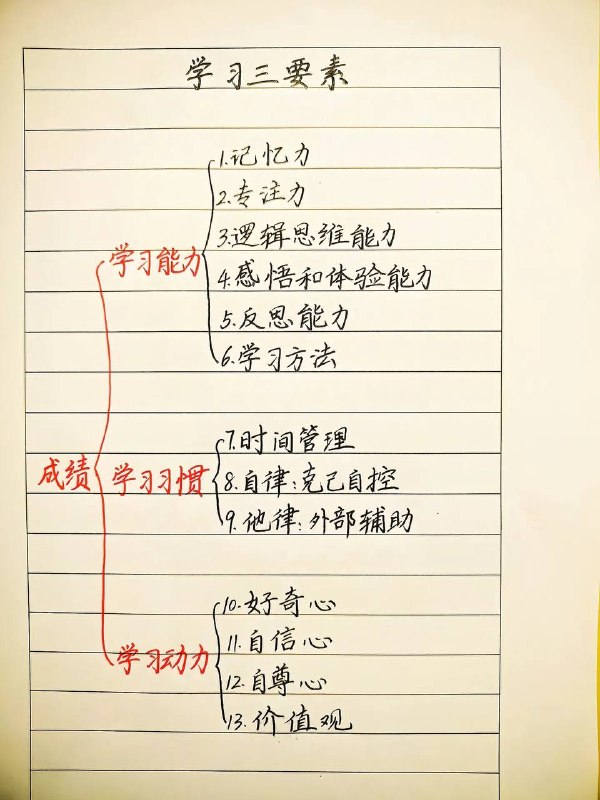 学习三要素
1.记忆力
2.专注力
3.逻辑思维能力
学习能力
4.感悟和体验能力
5.反思能力
6.学习方法
7.时间管理
成绩
学习习惯
8.自律:克己自控
9.他律:外部辅助
10.好奇心
11.自信心
学习动力
12.自尊心
13.价值观